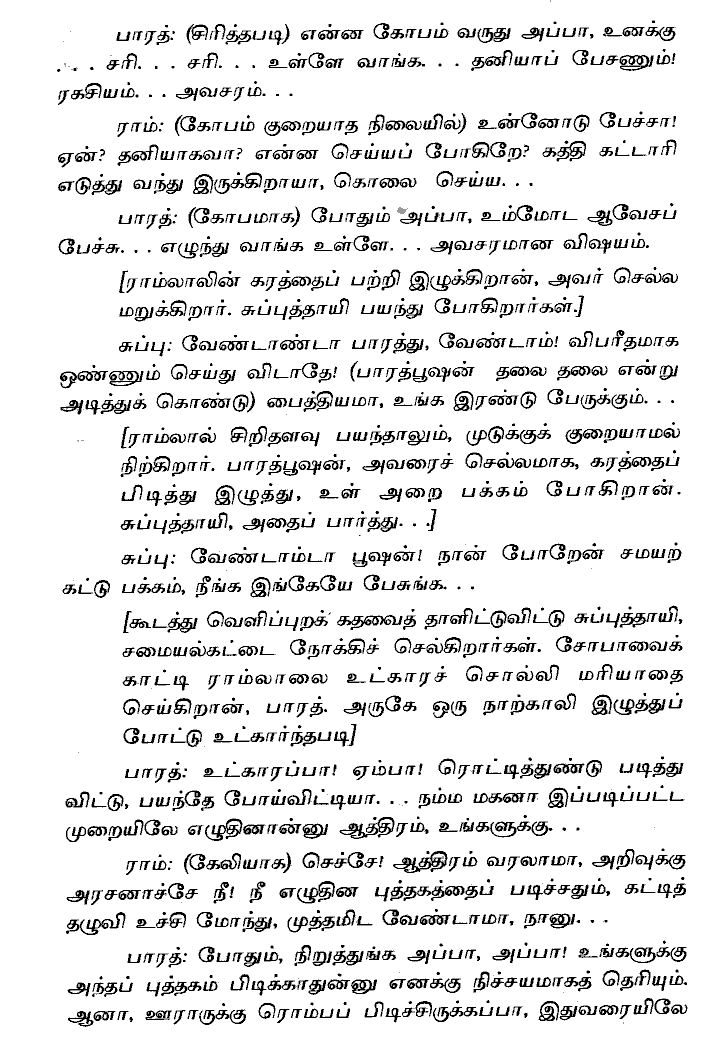 பாரத்: (சிரித்தபடி) என்ன கோபம் வருது அப்பா, உனக்கு
. . . சரி. . . சரி. . . உள்ளே வாங்க. . . தனியாப் பேசணும்!
ரகசியம். . . அவசரம். . .
ராம்: (கோபம் குறையாத நிலையில்) உன்னோடு பேச்சா!
ஏன்? தனியாகவா? என்ன செய்யப் போகிறே? கத்தி கட்டாரி
எடுத்து வந்து இருக்கிறாயா, கொலை செய்ய. . .
பாரத்: (கோபமாக) போதும் அப்பா, உம்மோட ஆவேசப்
பேச்சு. . . எழுந்து வாங்க உள்ளே. . . அவசரமான விஷயம்.
[ராம்லாலின் கரத்தைப் பற்றி இழுக்கிறான், அவர் செல்ல
மறுக்கிறார். சுப்புத்தாயி பயந்து போகிறார்கள்.]
சுப்பு: வேண்டாண்டா பாரத்து, வேண்டாம்! விபரீதமாக
ஒண்ணும் செய்து விடாதே! (பாரத்பூஷன் தலை தலை என்று
அடித்துக் கொண்டு) பைத்தியமா, உங்க இரண்டு பேருக்கும். . .
[ராம்லால் சிறிதளவு பயந்தாலும், முடுக்குக் குறையாமல்
நிற்கிறார். பாரத்பூஷன், அவரைச் செல்லமாக, கரத்தைப்
பிடித்து இழுத்து, உள் அறை பக்கம் போகிறான்.
சுப்புத்தாயி, அதைப் பார்த்து. . .]
சுப்பு: வேண்டாம்டா பூஷன்! நான் போறேன் சமயற்
கட்டு பக்கம், நீங்க இங்கேயே பேசுங்க. . .
[கூடத்து வெளிப்புறக் கதவைத் தாளிட்டுவிட்டு சுப்புத்தாயி,
சமையல்கட்டை நோக்கிச் செல்கிறார்கள். சோபாவைக்
காட்டி ராம்லாலை உட்காரச் சொல்லி மரியாதை
செய்கிறான், பாரத். அருகே ஒரு நாற்காலி இழுத்துப்
போட்டு உட்கார்ந்தபடி]
பாரத்: உட்காரப்பா! ஏம்பா! ரொட்டித்துண்டு படித்து
விட்டு, பயந்தே போய்விட்டியா. . . நம்ம மகனா இப்படிப்பட்ட
முறையிலே எழுதினான்னு ஆத்திரம், உங்களுக்கு. . .
ராம்: (கேலியாக) செச்சே! ஆத்திரம் வரலாமா, அறிவுக்கு
அரசனாச்சே நீ! நீ எழுதின புத்தகத்தைப் படிச்சதும், கட்டித்
தழுவி உச்சி மோந்து, முத்தமிட வேண்டாமா, நானு. . .
பாரத்: போதும், நிறுத்துங்க அப்பா, அப்பா! உங்களுக்கு
அந்தப் புத்தகம் பிடிக்காதுன்னு எனக்கு நிச்சயமாகத் தெரியும்.
ஆனா, ஊராருக்கு ரொம்பப் பிடிச்சிருக்கப்பா, இதுவரையிலே